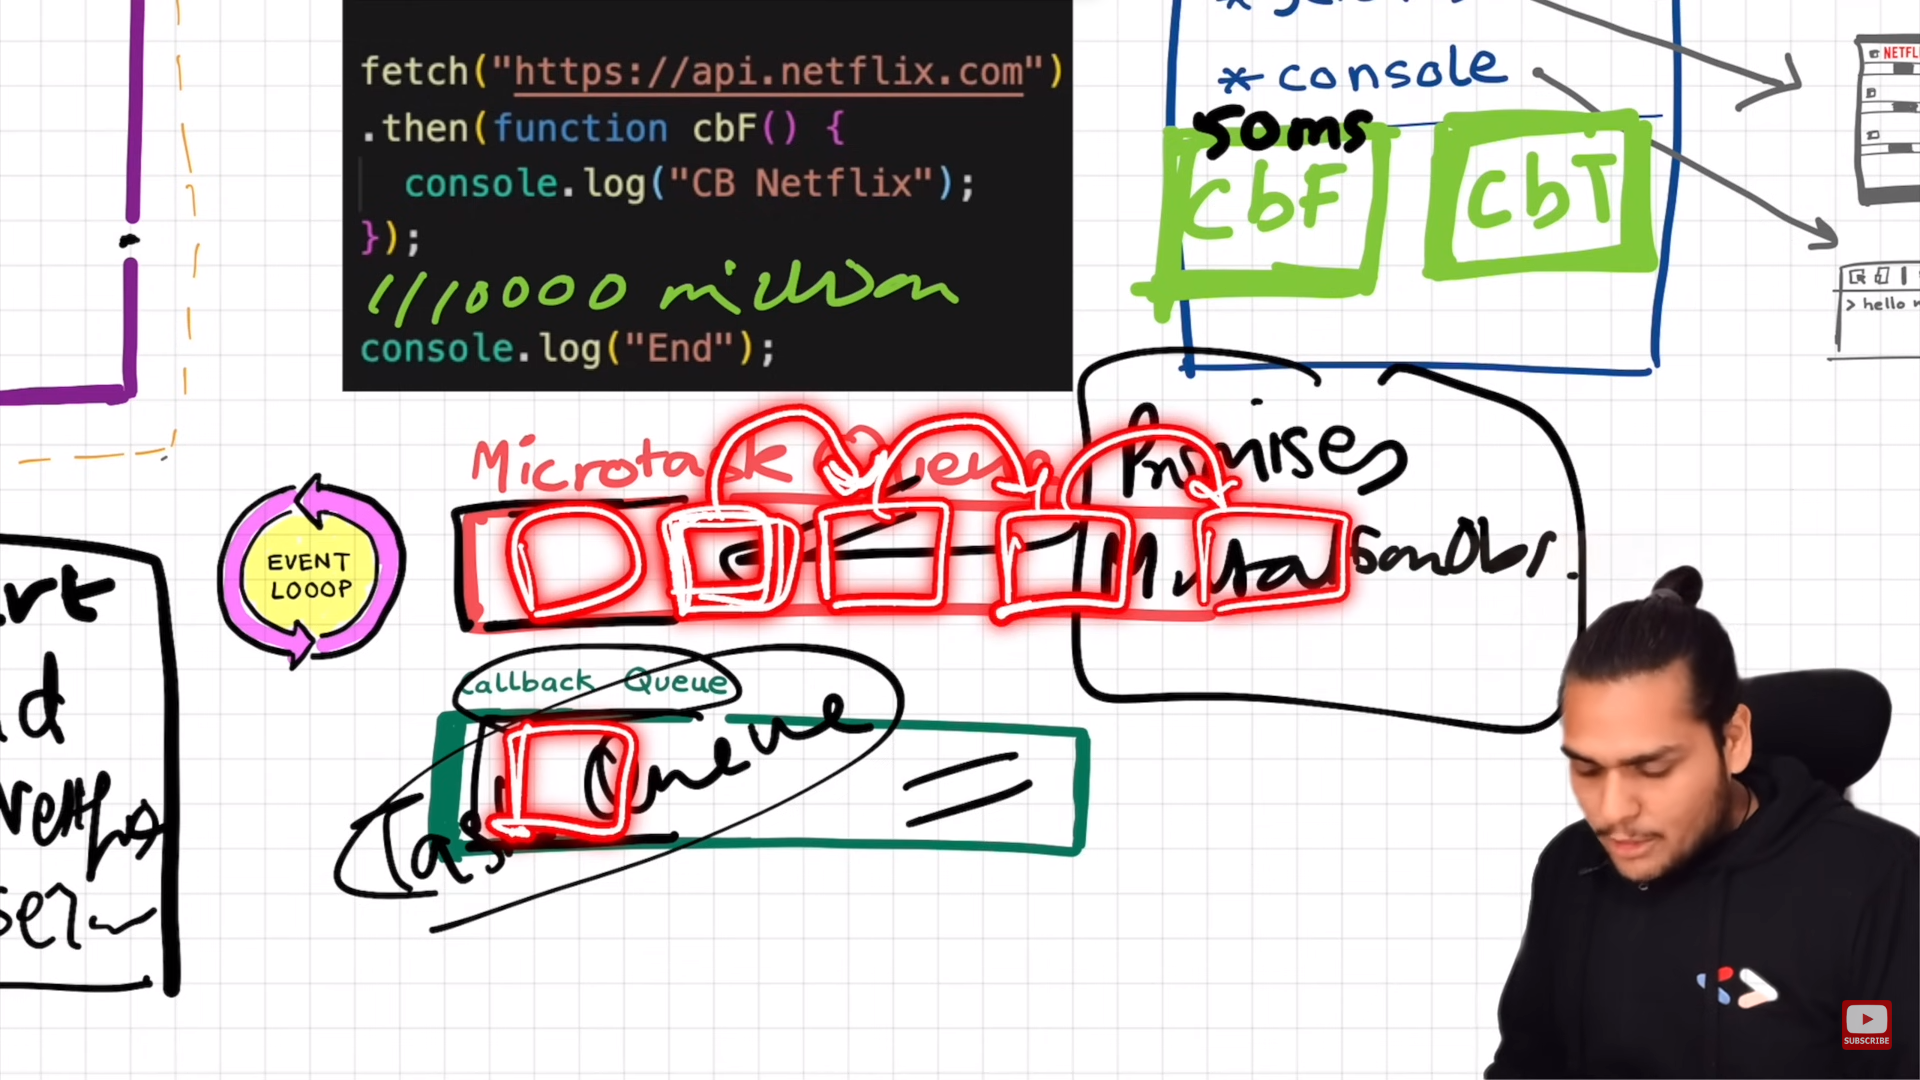 fetch("https://api.netflix.com")
.then(function cbF() {
console.log("CB Netflix");
});
//10000 million
console.log("End");
* console
50ms
cbF
cbT
NETFL
> hello
Microtask Queue
Promises
Mutation Obs.
EVENT
LOOOP
Callback Queue
Task Queue
SUBSCRIBE